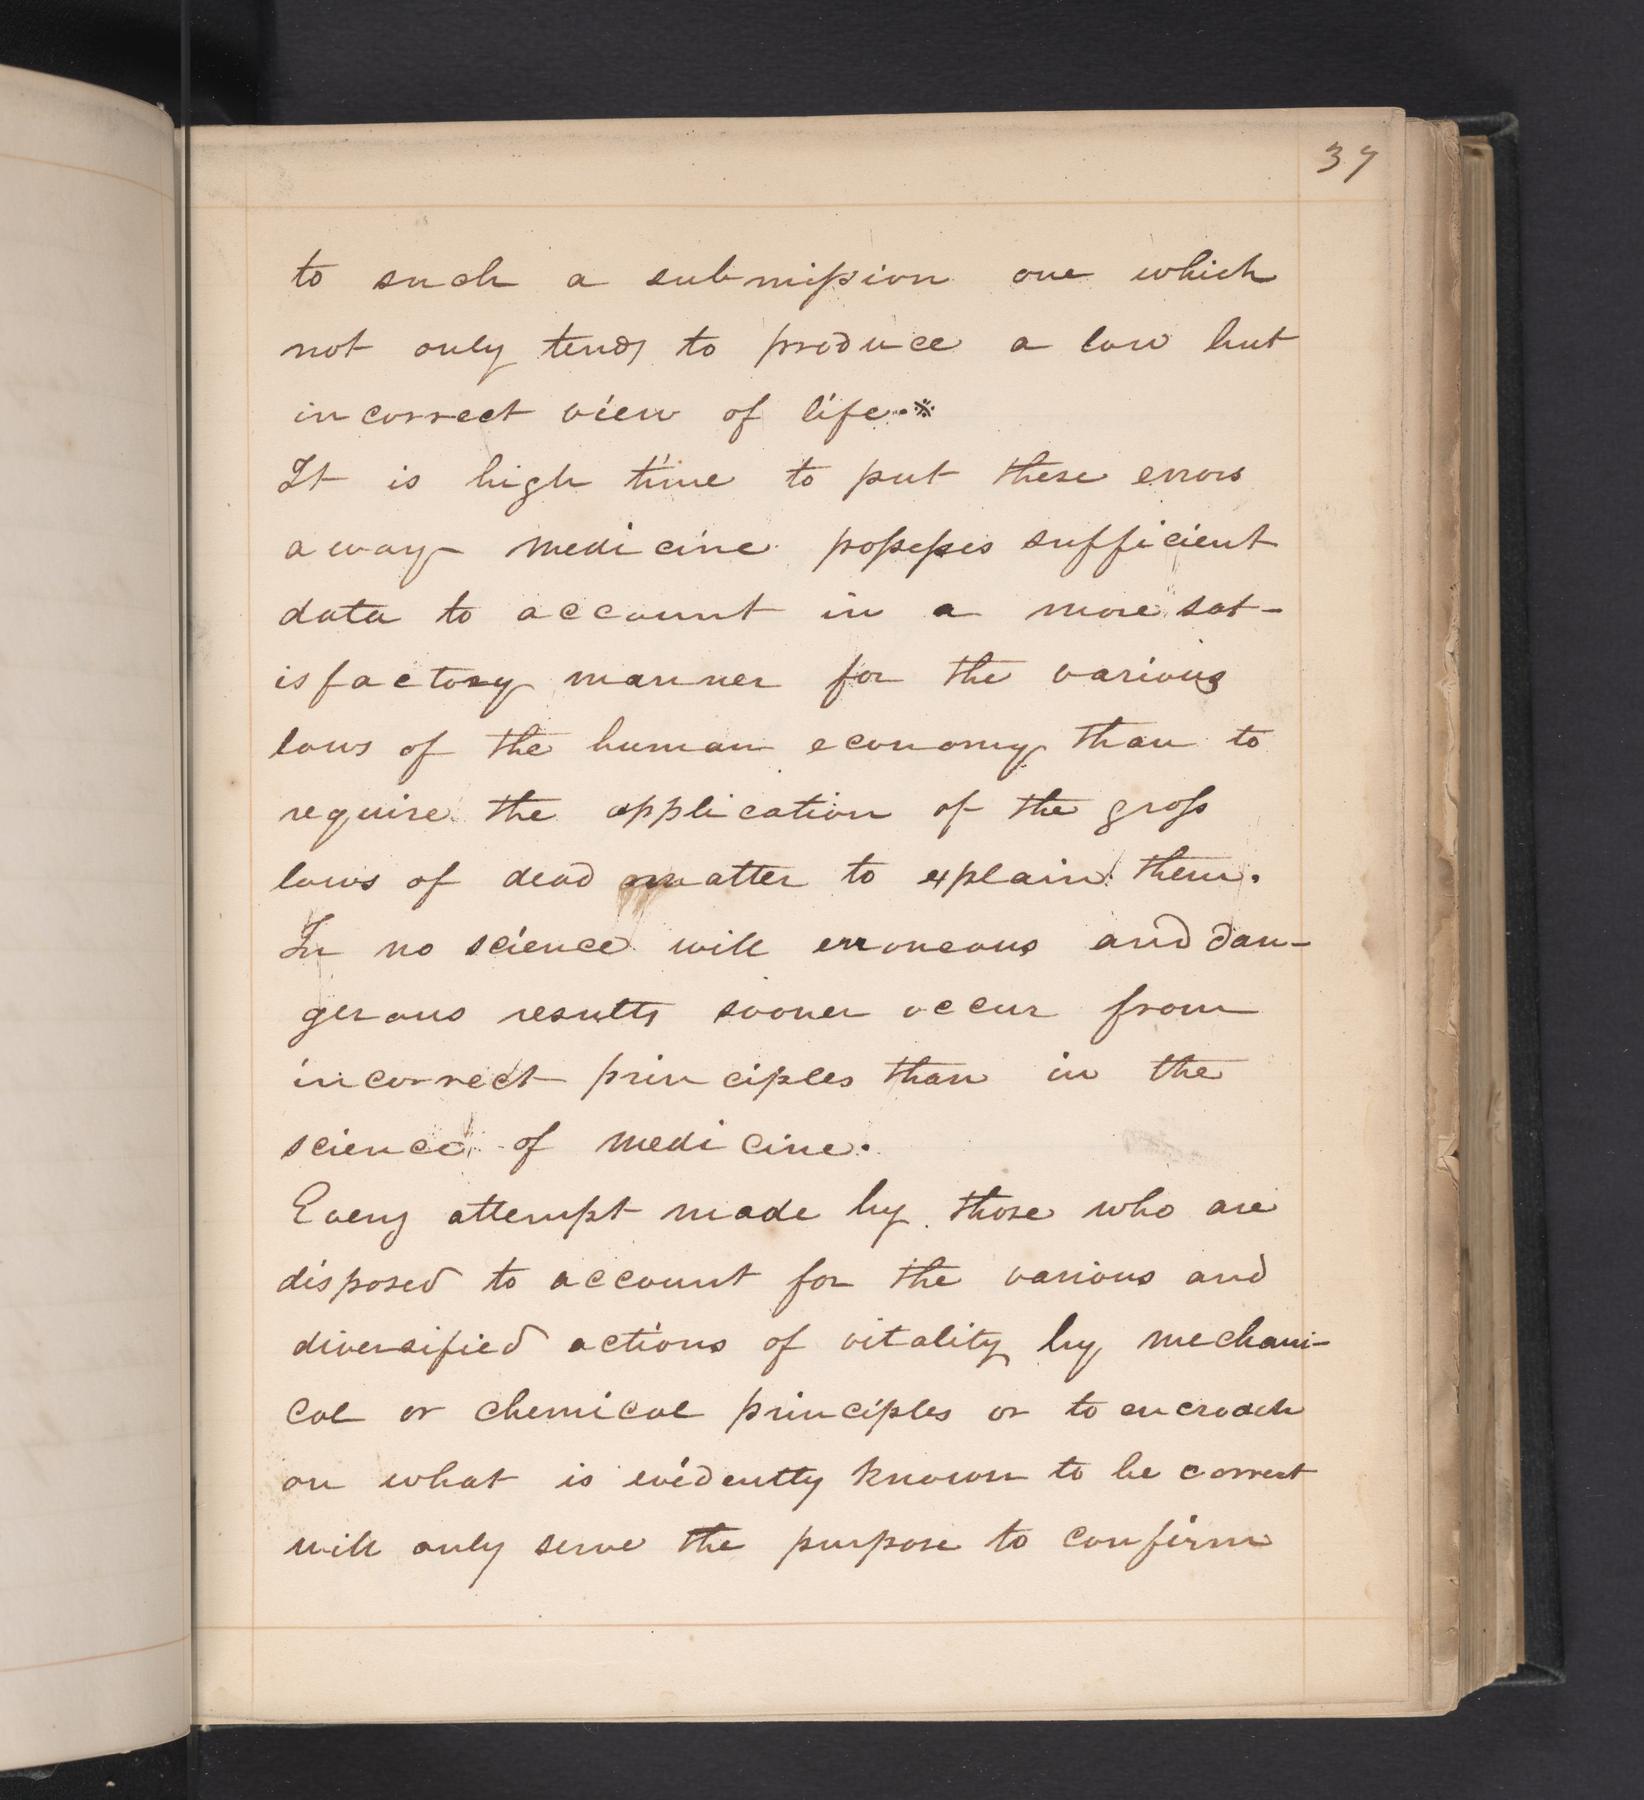 37
to such a submission one which
not only tends to produce a low but
incorrect view of life.※
It is high time to put these errors
away medicine possesses sufficient
data to account in a more sat-
isfactory manner for the various
laws of the human economy than to
require the application of the gross
laws of dead matter to explain them.
In no science will erroneous and dan-
gerous results sooner occur from
incorrect principles than in the
science of medicine.
Every attempt made by those who are
disposed to account for the various and
diversified actions of vitality by mechani-
cal or chemical principles or to encroach
on what is evidently known to be correct
will only serve the purpose to confirm